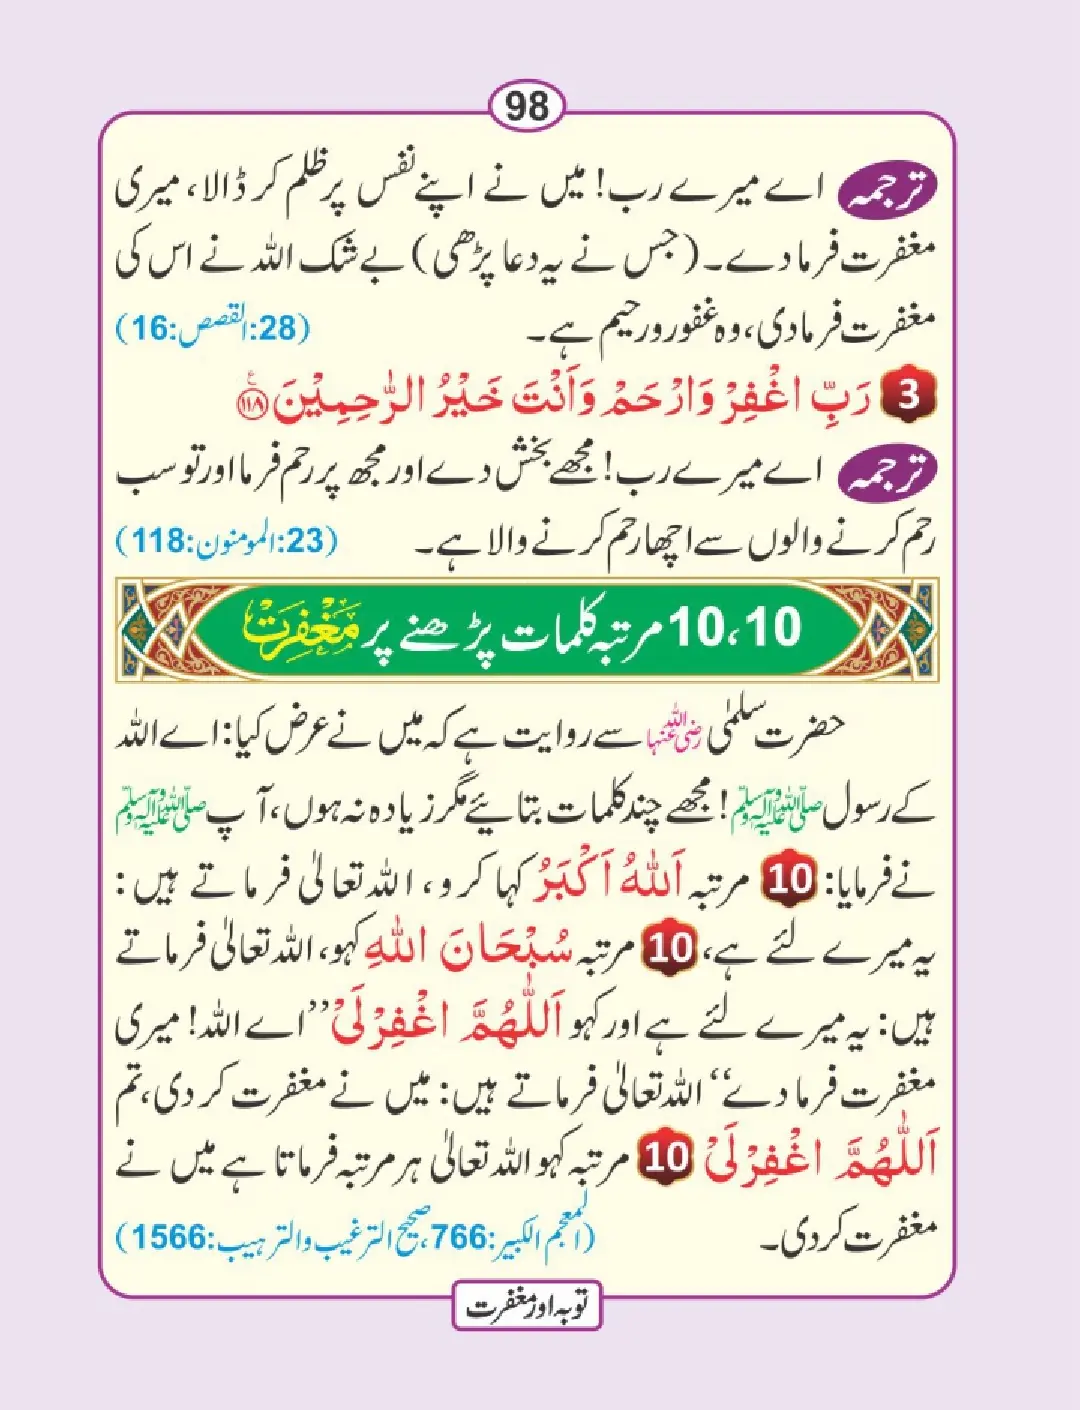 98
ترجمہ اے میرے رب! میں نے اپنے نفس پر ظلم کر ڈالا، میری
مغفرت فرما دے۔ (جس نے یہ دعا پڑھی) بے شک اللہ نے اس کی
مغفرت فرما دی، وہ غفور ورحیم ہے۔ (28:القصص:16)
3 رَبِّ اغْفِرْ وَارْحَمْ وَاَنْتَ خَيْرُ الرّٰحِمِيْنَ ۧ﴿۱۱۸﴾
ترجمہ اے میرے رب! مجھے بخش دے اور مجھ پر رحم فرما اور تو سب
رحم کرنے والوں سے اچھا رحم کرنے والا ہے۔ (23:المومنون:118)
10،10 مرتبہ کلمات پڑھنے پر مَغْفِرَتْ
حضرت سلمٰی رضی اللہ عنہا سے روایت ہے کہ میں نے عرض کیا: اے اللہ
کے رسول صلی اللہ علیہ وآلہ وسلم! مجھے چند کلمات بتائیے مگر زیادہ نہ ہوں، آپ صلی اللہ علیہ وآلہ وسلم
نے فرمایا: 10 مرتبہ اَللهُ اَكْبَرُ کہا کرو، اللہ تعالیٰ فرماتے ہیں:
یہ میرے لئے ہے، 10 مرتبہ سُبْحَانَ اللهِ کہو، اللہ تعالیٰ فرماتے
ہیں: یہ میرے لئے ہے اور کہو اَللّٰهُمَّ اغْفِرْلَیْ ’’اے اللہ! میری
مغفرت فرما دے‘‘ اللہ تعالیٰ فرماتے ہیں: میں نے مغفرت کر دی، تم
اَللّٰهُمَّ اغْفِرْلَیْ 10 مرتبہ کہو اللہ تعالیٰ ہر مرتبہ فرماتا ہے میں نے
مغفرت کر دی۔ (المعجم الکبیر:766، صحیح الترغیب والترہیب:1566)
توبہ اور مغفرت